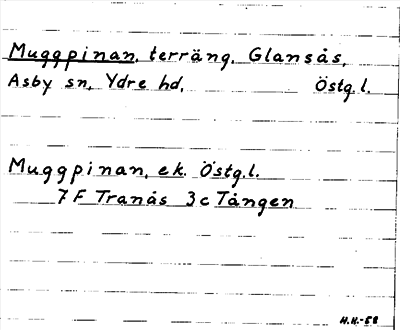 Muggpinan, terräng, Glansås,
Asby sn, Ydre hd, Östg.l.
Muggpinan, ek. Östg.l.
7 F Tranås 3c Tången
H.H.-58